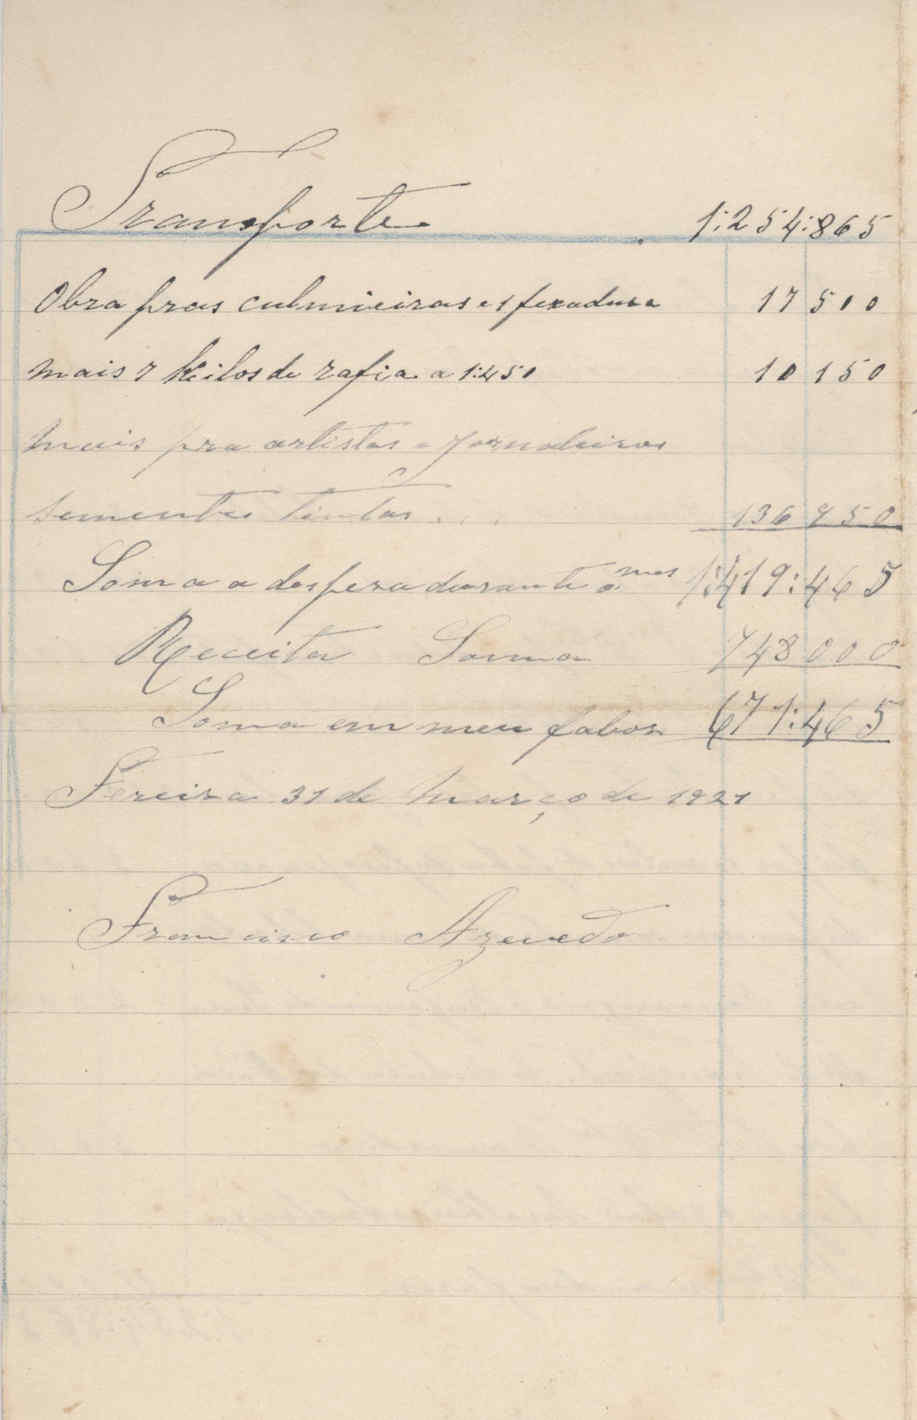 Transporte 1:254:865
Obra pras culmieiras e 1 fexadura 17 500
mais 7 kilos de rafia a 1:450 10 150
mais pra artistas e jornaleiros
sementes tintas . . . 136 950
Soma a despeza durante o mes 1:419:465
Receita Soma 748 000
Soma em meu fabor 671:465
Fereira 31 de Março de 1921
Francisco Azevedo